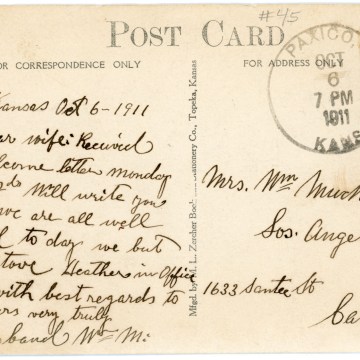 #45
POST CARD
OR CORRESPONDENCE ONLY
FOR ADDRESS ONLY
PAXICO,
OCT
6
7 PM
1911
KANS
Kansas Oct 6-1911
ar wife: Received
lcome letter monday
Will write you
we are all well
l to day we but
tove Heather in Office
with best regards to
ers very truly
sband Wm M:
Mfgd. by M. L. Zercher Book Stationery Co., Topeka, Kansas
Mrs. Wm Much
Los. Ange
1633 Santee St
Ca